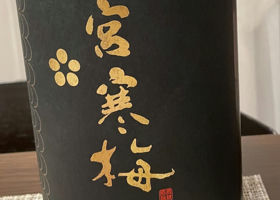 宮寒梅